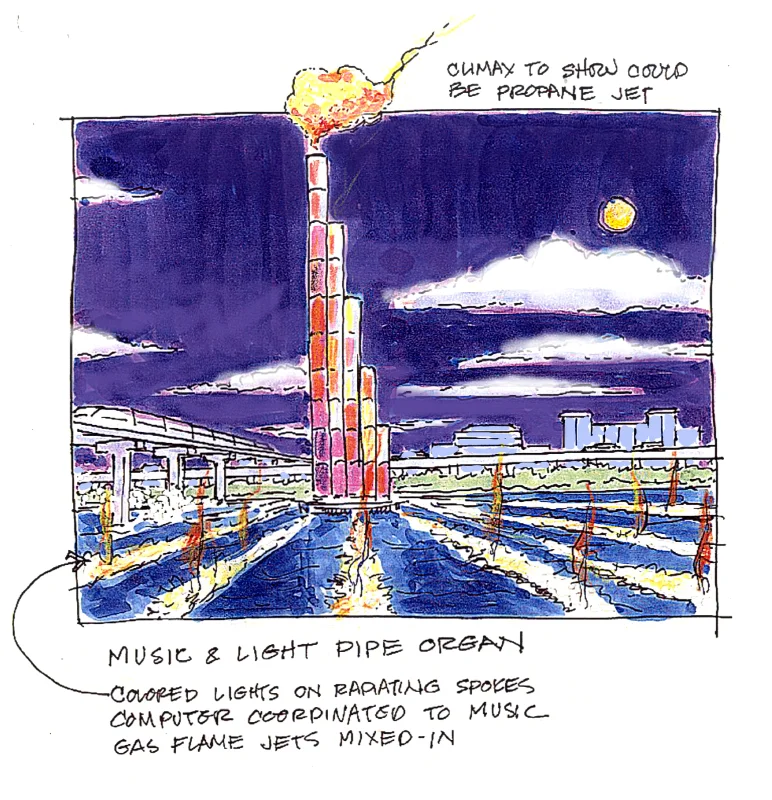 CLIMAX TO SHOW COULD
BE PROPANE JET
MUSIC & LIGHT PIPE ORGAN
COLORED LIGHTS ON RADIATING SPOKES
COMPUTER COORDINATED TO MUSIC
GAS FLAME JETS MIXED-IN